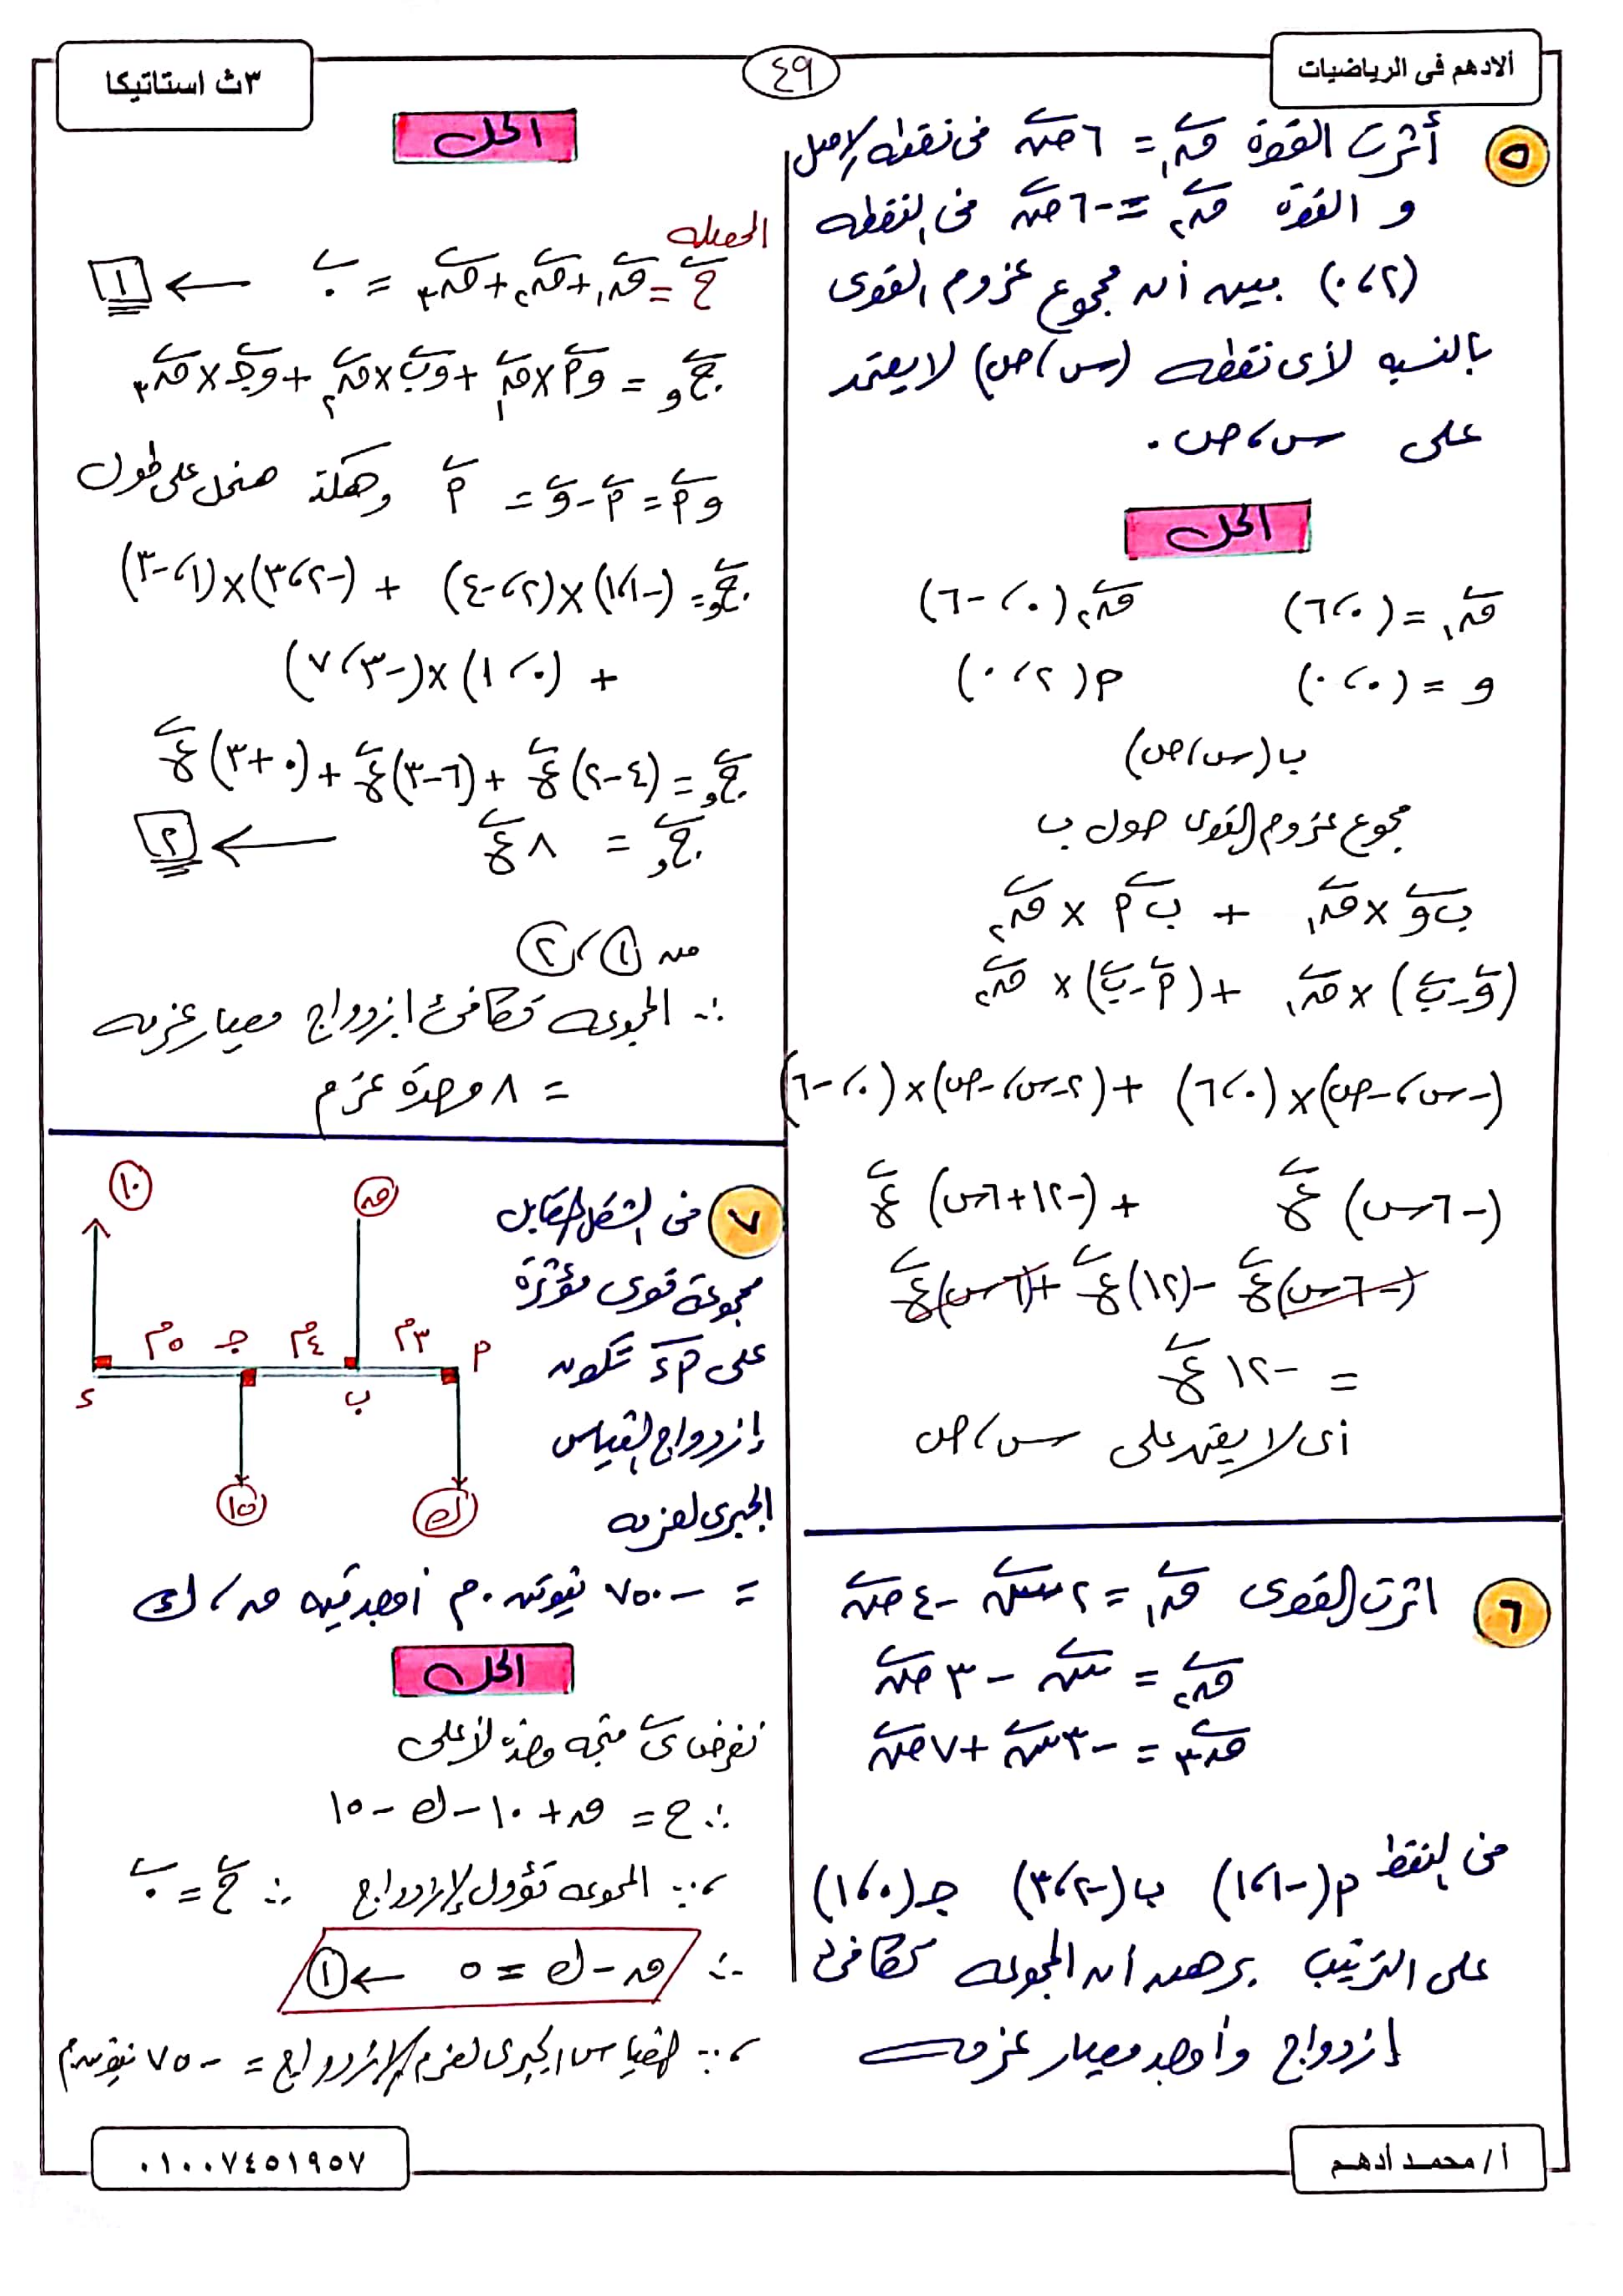 ألادهم فى الرياضيات
٤٩
٣ث استاتيكا
٥ أثرت القوة ق١ = ٦ ص فى نقطه الاصل
و القوة ق٢ = -٦ ص فى النقطه
(٢، ٠) بين أن مجموع عزوم القوى
بالنسبه لأى نقطه (س، ص) لا يعتمد
على س، ص.
الحل
ق١ = (٠، ٦) ق٢ (٠، -٦)
و = (٠، ٠) م (٢، ٠)
ب (س، ص)
مجموع عزوم القوى حول ب
ب و × ق١ + ب م × ق٢
(و - ب) × ق١ + (م - ب) × ق٢
(-س، -ص) × (٠، ٦) + (٢-س، -ص) × (٠، -٦)
(-٦س) ع + (-١٢+٦س) ع
(-٦س) ع - (١٢) ع + (٦س) ع
= -١٢ ع
أى لا يعتمد على س، ص
٦ اثرت القوى ق١ = ٢س - ٤ص
ق٢ = س - ٣ص
ق٣ = -٣س + ٧ص
فى النقط م(-١، ١) ب(-٢، ٣) جـ(٠، ١)
على الترتيب برهن أن المجموعه تكافئ
إزدواج وأوجد معيار عزمه
الحل
المحصله
ح = ق١ + ق٢ + ق٣ = ٠ ← ١
ج و = و م × ق١ + و ب × ق٢ + و جـ × ق٣
و م = م - و = م وهكذا هنحل على طول
ج و = (-١، ١) × (٢، -٤) + (-٢، ٣) × (١، -٣)
+ (٠، ١) × (-٣، ٧)
ج و = (٤-٢) ع + (٦-٣) ع + (٠+٣) ع
ج و = ٨ ع ← ٢
من ١، ٢
∴ المجموعه تكافئ ازدواج معيار عزمه
= ٨ وحدة عزم
٧ فى الشكل المقابل
مجموعة قوى مؤثرة
على م ء تكون
إزدواج القياس
الجبرى لعزمه
١٠ ق
٥م جـ ٤م ٣م م
ء ب
١٥ ك
= -٧٥٠ نيوتن.م أوجد قيمه ق، ك
الحل
نفرض ى متجه وحدة لأعلى
∴ ح = ق + ١٠ - ك - ١٥
، ∵ المجموعه تؤول لإزدواج ∴ ح = ٠
∴ ق - ك = ٥ ← ١
، ∵ القياس الجبرى لعزم الإزدواج = -٧٥٠ نيوتن.م
أ/محمـد أدهـم
٠١٠٠٧٤٥١٩٥٧